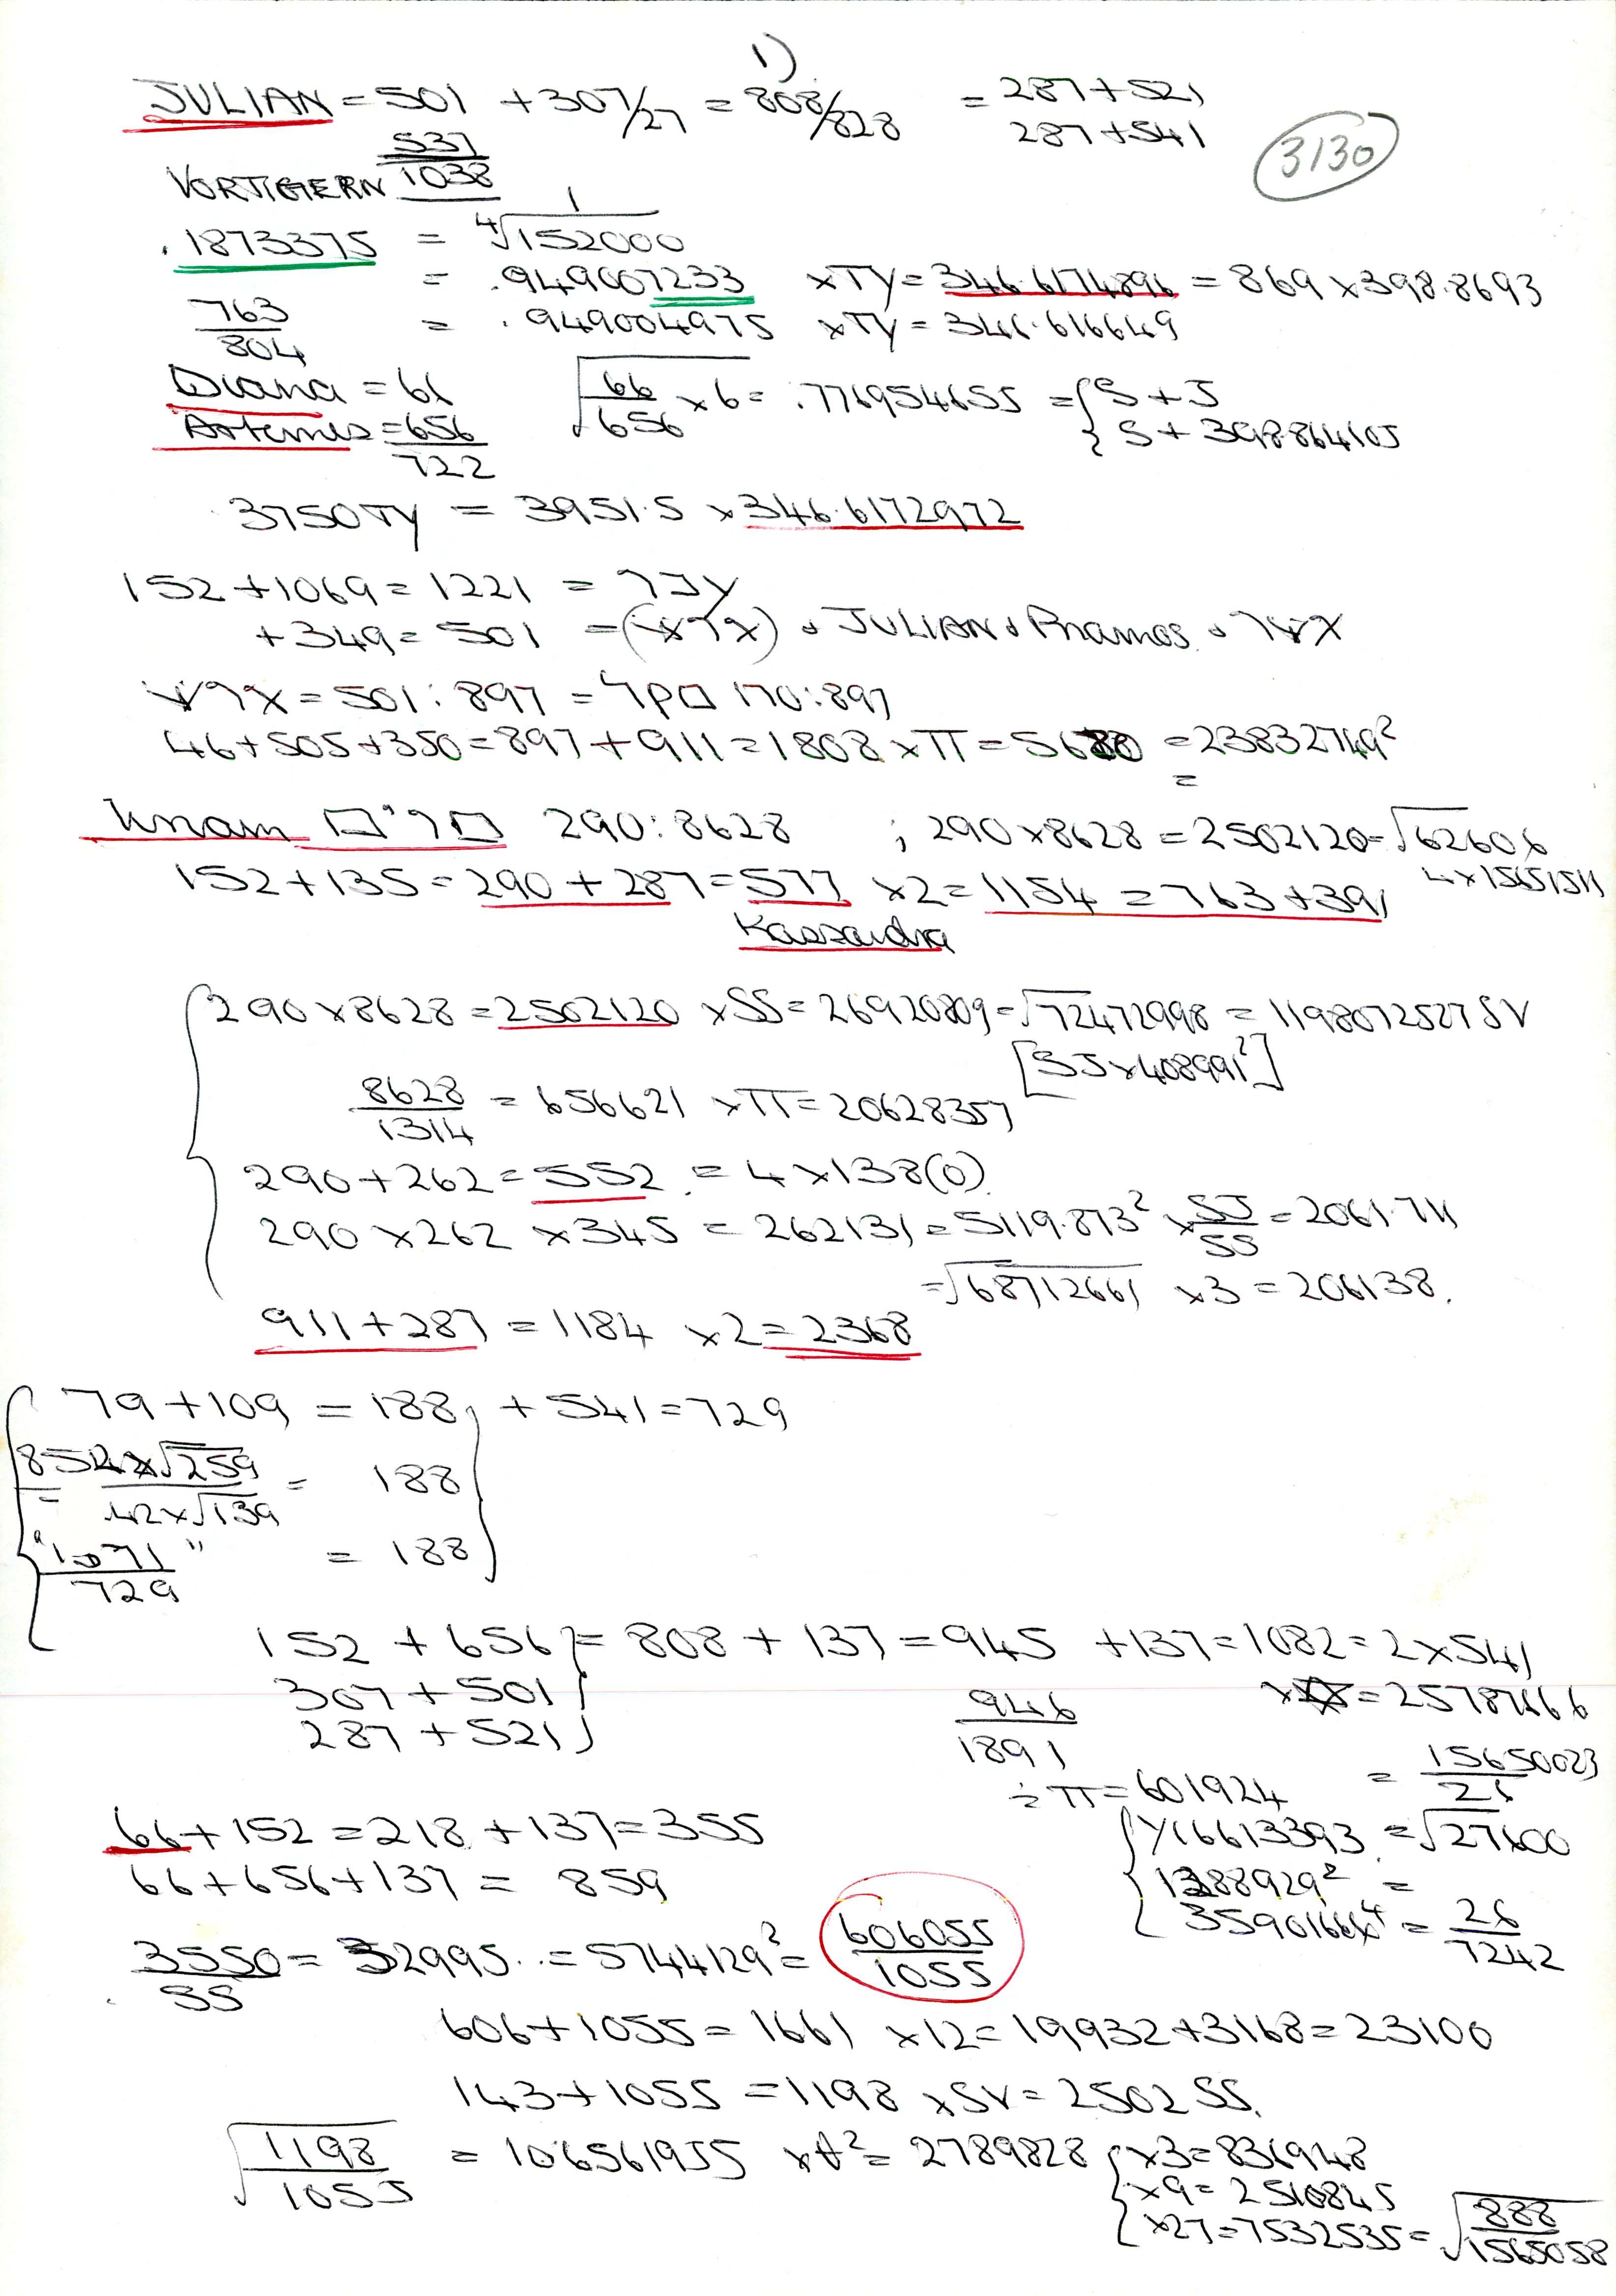 1)
JULIAN = 501 + 307/27 = 808/828 = 287+521
287+541
3130
537
VORTIGERN 1038
.1873375 = ∜1/152000
= .949007233 ×TY = 346.6174896 = 869 × 398.8693
763/804 = .949004975 ×TY = 346.616649
Diana = 66 √66/656 × 6 = .776954655 = { S + J
Artemis = 656 { S + 398.864105
722
3750TY = 3951.5 × 346.6172972
152+1069 = 1221
+349 = 501 JULIAN
= 501 : 897 = 170 : 897
46+505+350 = 897 + 911 = 1808 × π = 5680 = 23832749²
=
290 : 8628 ; 290 × 8628 = 2502120 = √62606
4 × 15651511
152 + 135 = 290 + 287 = 577 × 2 = 1154 = 763 + 391
Kassandra
290 × 8628 = 2502120 × SS = 26920809 = √72472998 = 1198072527 SV
[SJ × 408991²]
8628/1314 = 656621 × π = 20628357
290 + 262 = 552 = 4 × 138(0)
290 × 262 × 345 = 262131 = 5119.873² × SJ/SS = 2061.711
= √68712661 × 3 = 206138.
911 + 287 = 1184 × 2 = 2368
79 + 109 = 188 + 541 = 729
√259 / 42 × √139 = 188
"1071"/729 = 188
152 + 656 } = 808 + 137 = 945 + 137 = 1082 = 2 × 541
307 + 501 }
287 + 521 }
946/1891 = 25787666
÷ π = 601924 = 15650023/26
66 + 152 = 218 + 137 = 355 { 16613393 = √27600
66 + 656 + 137 = 859 { 1288929² =
3550/SS = 32995.. = 5744129² = 606055/1055 { 35901666⁴ = 26/7242
606 + 1055 = 1661 × 12 = 19932 + 3168 = 23100
143 + 1055 = 1198 × SV = 2502 SS.
√1198/1055 = 106561955 × t² = 2789828 { ×3 = 836948
{ ×9 = 2510845
{ ×27 = 7532535 = √888/1565058